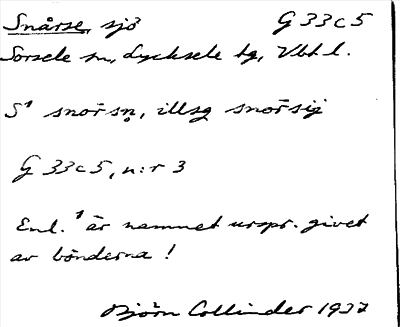 Snårse, sjö G 33c5
Sorsele sn, Lycksele tg, Vbl l.
S¹ snōrsn̥, illsg snōrsij
G 33c5, n:r 3
Enl. ¹ är namnet urspr. givet
av bönderna!
Björn Collinder 1937